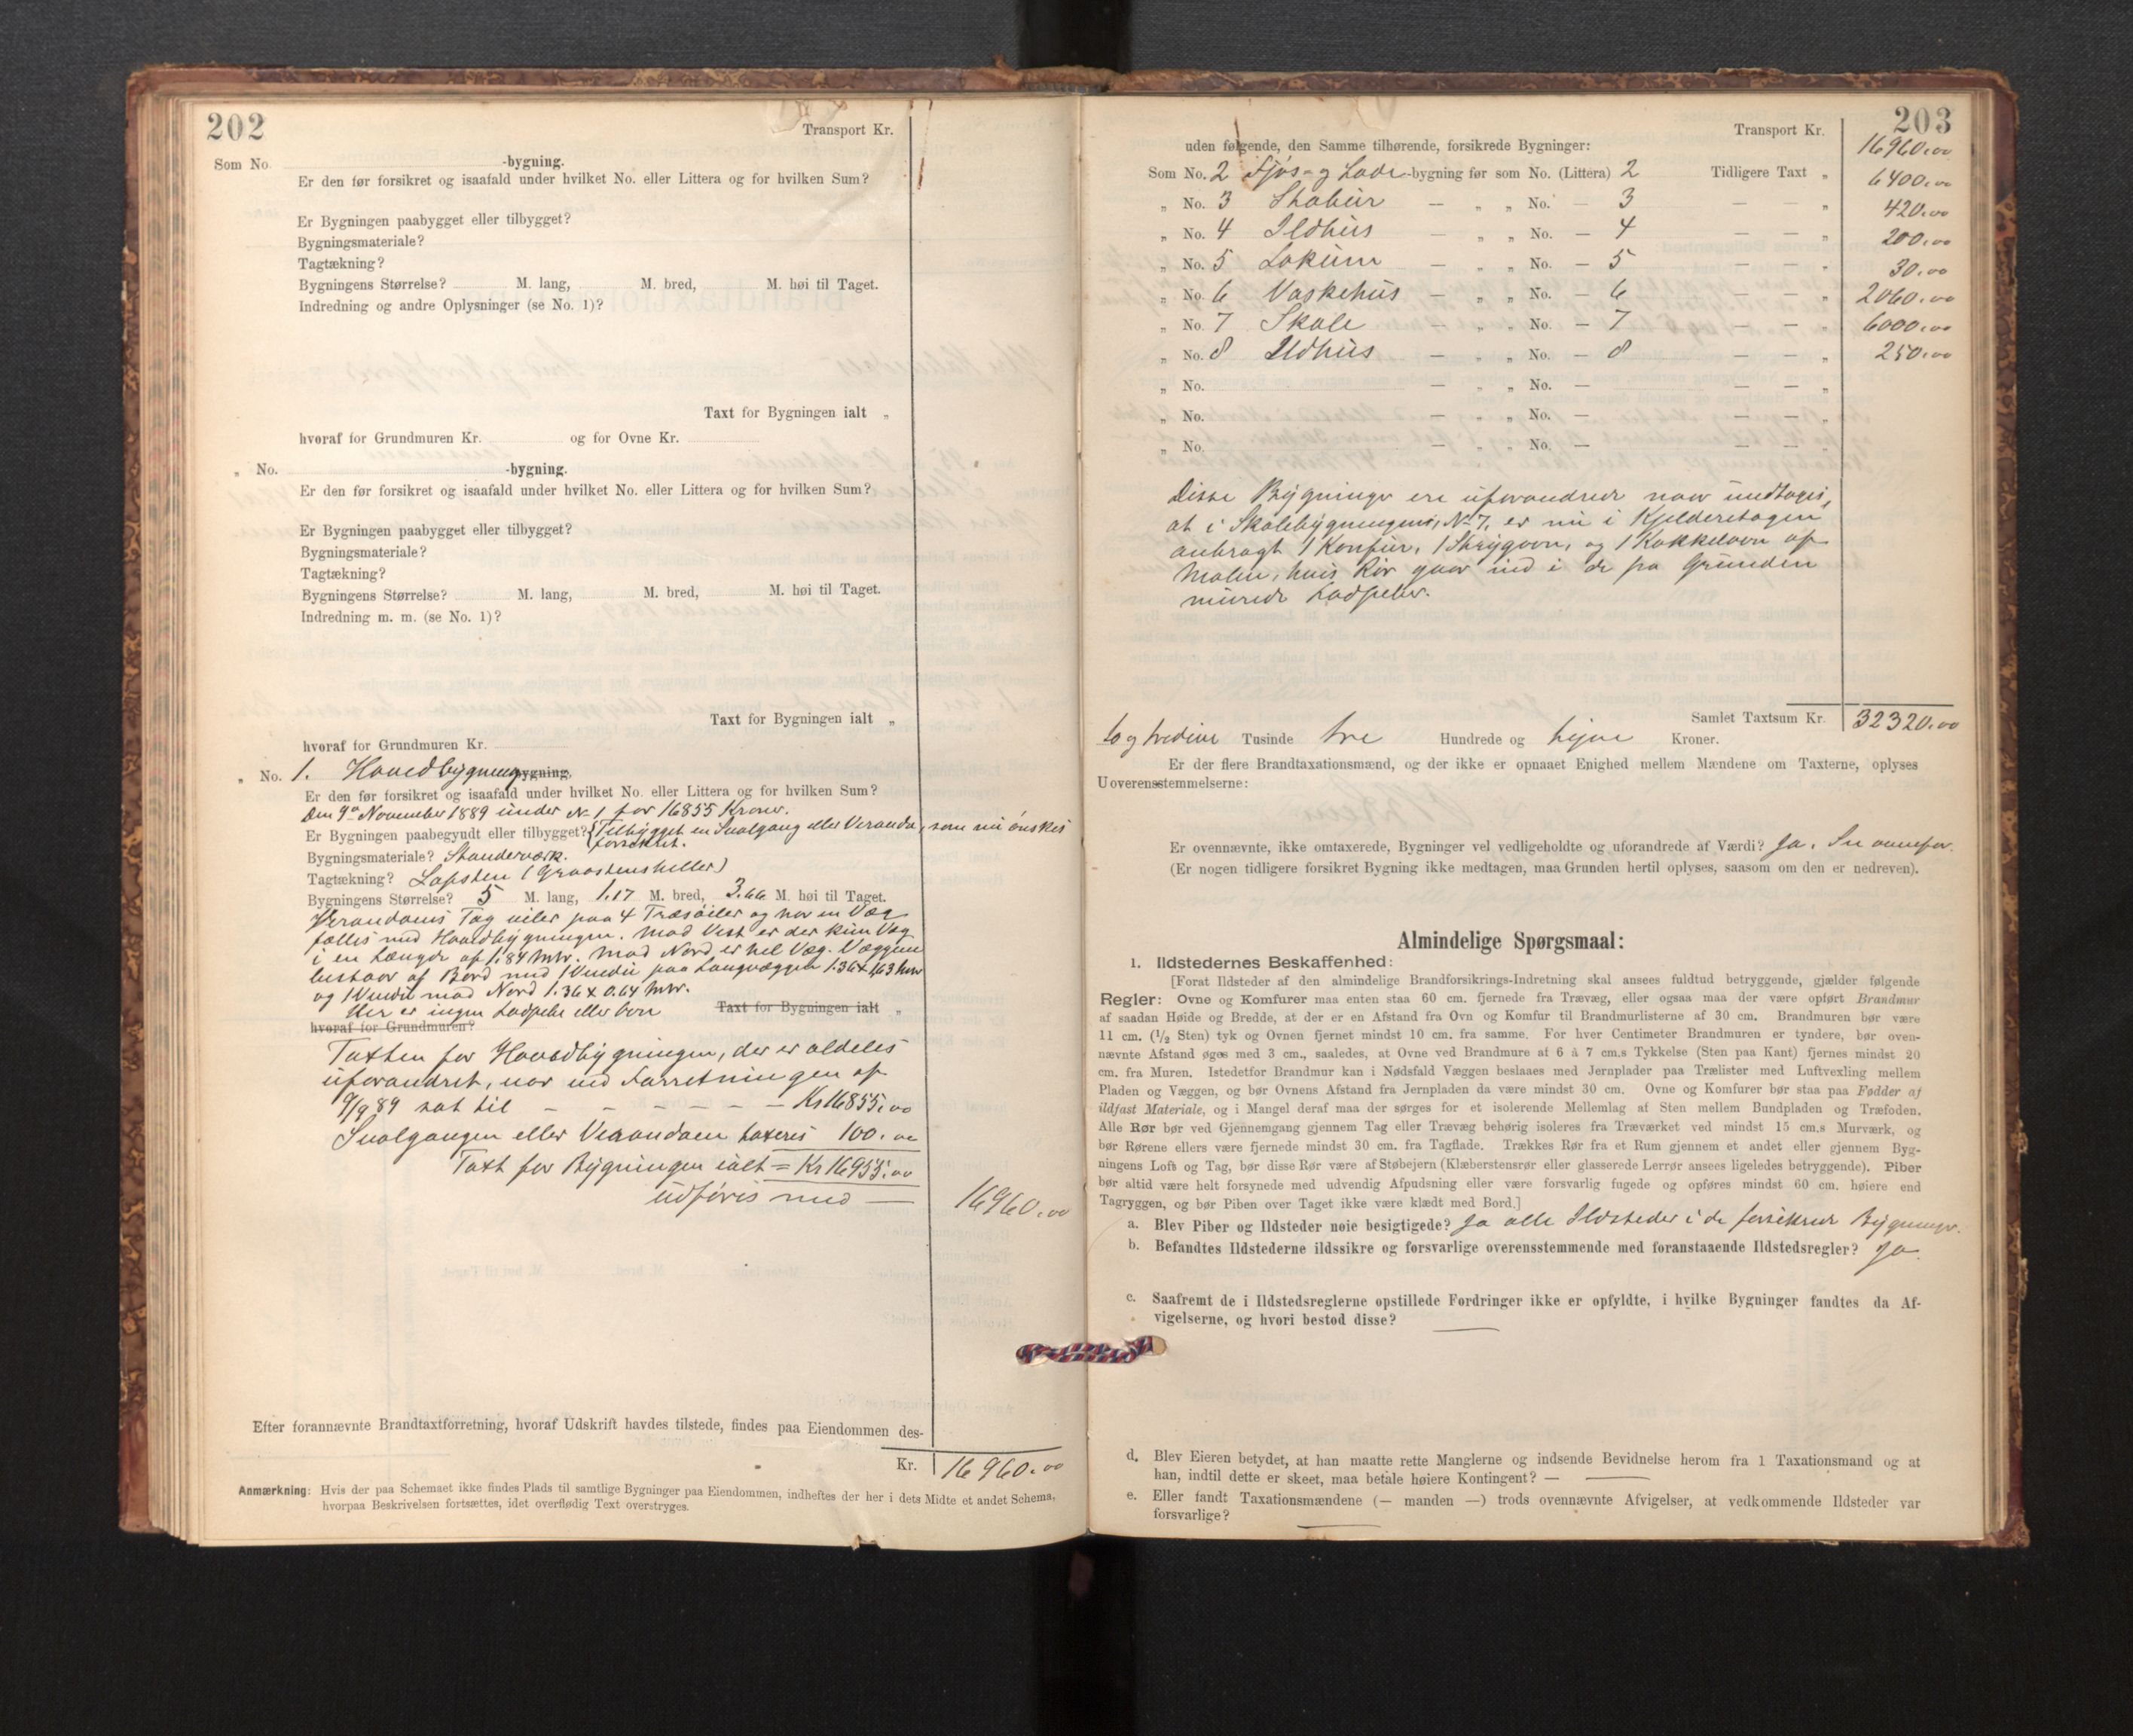 202
Transport Kr.
Som No. -bygning.
Er den før forsikret og isaafald under hvilket No. eller Littera og for hvilken Sum?
Er Bygningen paabygget eller tilbygget?
Bygningsmateriale?
Tagtækning?
Bygningens Størrelse? M. lang, M. bred, M. høi til Taget.
Indredning og andre Oplysninger (se No. 1)?
Taxt for Bygningen ialt „
hvoraf for Grundmuren Kr. og for Ovne Kr.
„ No. -bygning.
Er den før forsikret og isaafald under hvilket No. eller Littera og for hvilken Sum?
Er Bygningen paabygget eller tilbygget?
Bygningsmateriale?
Tagtækning?
Bygningens Størrelse? M. lang, M. bred, M. høi til Taget.
Indredning m. m. (se No. 1)?
Taxt for Bygningen ialt „
hvoraf for Grundmuren Kr.
„ No. 1. Hovedbygning -bygning.
Er den før forsikret og isaafald under hvilket No. eller Littera og for hvilken Sum?
Den 9de November 1889 under No 1 for 16855 Kroner.
Er Bygningen paabegyndt eller tilbygget? Tilbygget en Svalgang eller Veranda, som nu ønskes
forsikret.
Bygningsmateriale? Stenderværk.
Tagtækning? Lapsten (Graastensheller)
Bygningens Størrelse? 5 M. lang, 1.17 M. bred, 3.66 M. høi til Taget.
Verandaens Tag hviler paa 4 Træsøiler og har en Væg
fælles med Hovedbygningen. Mod Vest er der kun Væg
i en Længde af 1.84 Mtr. Mod Nord er hel Væg. Væggene
bestaar af Bord med 1 Vindu paa Langvæggen 1.36 x 1,63 Mtr
og 1 Vindu mod Nord 1.36 x 0.64 Mtr.
Her er ingen Ladpibe eller Ovn Taxt for Bygningen ialt „
hvoraf for Grundmuren?
Taxten for Hovedbygningen, der er aldeles
uforandret, var ved Forretningen af
9/9 89 sat til — — — — — — Kr 16855,00
Svalgangen eller Verandaen taxeres 100.00
Taxt for Bygningen ialt = Kr 16955.00
udføres med — 16960.00
Efter forannævnte Brandtaxtforretning, hvoraf Udskrift havdes tilstede, findes paa Eiendommen des-
Kr. 16960.00
Anmærkning: Hvis der paa Schemaet ikke findes Plads til samtlige Bygninger paa Eiendommen, indheftes der her i dets Midte et andet Schema,
hvorpaa Beskrivelsen fortsættes, idet overflødig Text overstryges.
203
Transport Kr. 16960.00
uden følgende, den Samme tilhørende, forsikrede Bygninger:
Som No. 2 Fjøs- og Lade -bygning før som No. (Littera) 2 Tidligere Taxt „ 6400.00
„ No. 3 Stabur — „ „ No. — 3 — — „ 420.00
„ No. 4 Ildhus — „ „ No. — 4 — — „ 200.00
„ No. 5 Lokum — „ „ No. — 5 — — „ 30.00
„ No. 6 Vaskehus — „ „ No. — 6 — — „ 2060.00
„ No. 7 Skole — „ „ No. — 7 — — „ 6000.00
„ No. 8 Ildhus — „ „ No. — 8 — — „ 250.00
„ No. — „ „ No. — — — „
„ No. — „ „ No. — — — „
„ No. — „ „ No. — — — „
Disse Bygninger ere uforandrede naar undtages,
at i Skolebygningens, No 7, er nu i Kjelderetagen
anbragt 1 Komfur, 1 Strygovn, og 1 Kakkelovn af
Malm, hvis Rør gaar ind i de fra Grunden
murede Ladpiber.
Samlet Taxtsum Kr. 32320.00
to og tredive Tusinde tre Hundrede og tyve Kroner.
Er der flere Brandtaxationsmænd, og der ikke er opnaaet Enighed mellem Mændene om Taxterne, oplyses
Uoverensstemmelserne:
Er ovennævnte, ikke omtaxerede, Bygninger vel vedligeholdte og uforandrede af Værdi? Ja. Se ovenfor.
(Er nogen tidligere forsikret Bygning ikke medtagen, maa Grunden hertil oplyses, saasom om den er nedreven).
Almindelige Spørgsmaal:
1. Ildstedernes Beskaffenhed:
[Forat Ildsteder af den almindelige Brandforsikrings-Indretning skal ansees fuldtud betryggende, gjælder følgende
Regler: Ovne og Komfurer maa enten staa 60 cm. fjernede fra Trævæg, eller ogsaa maa der være opført Brandmur
af saadan Høide og Bredde, at der er en Afstand fra Ovn og Komfur til Brandmurlisterne af 30 cm. Brandmuren bør være
11 cm. (1/2 Sten) tyk og Ovnen fjernet mindst 10 cm. fra samme. For hver Centimeter Brandmuren er tyndere, bør oven-
nævnte Afstand øges med 3 cm., saaledes, at Ovne ved Brandmure af 6 à 7 cm.s Tykkelse (Sten paa Kant) fjernes mindst 20
cm. fra Muren. Istedetfor Brandmur kan i Nødsfald Væggen beslaaes med Jernplader paa Trælister med Luftvexling mellem
Pladen og Væggen, og bør Ovnens Afstand fra Jernpladen da være mindst 30 cm. Ovne og Komfurer bør staa paa Fødder af
ildfast Materiale, og i Mangel deraf maa der sørges for et isolerende Mellemlag af Sten mellem Bundpladen og Træfoden.
Alle Rør bør ved Gjennemgang gjennem Tag eller Trævæg behørig isoleres fra Træværket ved mindst 15 cm.s Murværk, og
bør Rørene ellers være fjernede mindst 30 cm. fra Tagflade. Trækkes Rør fra et Rum gjennem et andet eller gjennem Byg-
ningens Loft og Tag, bør disse Rør være af Støbejern (Klæberstensrør eller glasserede Lerrør ansees ligeledes betryggende). Piber
bør altid være helt forsynede med udvendig Afpudsning eller være forsvarlig fugede og opføres mindst 60 cm. høiere end
Tagryggen, og bør Piben over Taget ikke være klædt med Bord.]
a. Blev Piber og Ildsteder nøie besigtigede? Ja alle Ildsteder i de forsikrede Bygninger.
b. Befandtes Ildstederne ildssikre og forsvarlige overensstemmende med foranstaaende Ildstedsregler? Ja.
c. Saafremt de i Ildstedsreglerne opstillede Fordringer ikke er opfyldte, i hvilke Bygninger fandtes da Af-
vigelserne, og hvori bestod disse? —
d. Blev Eieren betydet, at han maatte rette Manglerne og indsende Bevidnelse herom fra 1 Taxationsmand og at
han, indtil dette er skeet, maa betale høiere Kontingent? — —
e. Eller fandt Taxationsmændene (— manden —) trods ovennævnte Afvigelser, at vedkommende Ildsteder var
forsvarlige? —